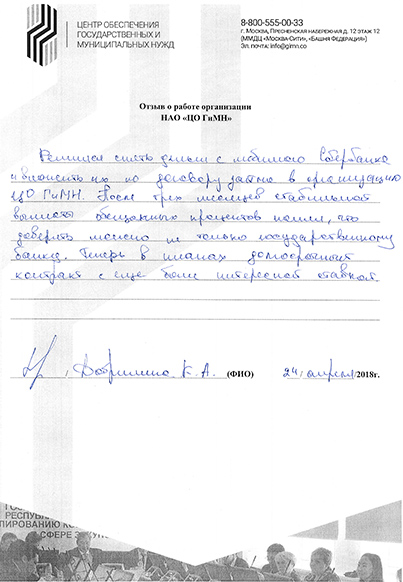 ЦЕНТР ОБЕСПЕЧЕНИЯ
ГОСУДАРСТВЕННЫХ И
МУНИЦИПАЛЬНЫХ НУЖД
8-800-555-00-33
Г. МОСКВА, ПРЕСНЕНСКАЯ НАБЕРЕЖНАЯ Д. 12 ЭТАЖ 12
(ММДЦ «МОСКВА-СИТИ», «БАШНЯ ФЕДЕРАЦИЯ»)
Эл. почта: info@gimn.co
Отзыв о работе организации
НАО «ЦО ГиМН»
Решился снять деньги с любимого Сбербанка
и вложить их по договору займа в организацию
ЦО ГиМН. После трех месяцев стабильной
выплаты обещанных процентов понял, что
доверять можно не только государственному
банку. Теперь в планах долгосрочный
контракт с еще более интересной ставкой.
К.А. (ФИО) 24, апреля 2018г.
РЕСПУБЛ
СФЕРЕ